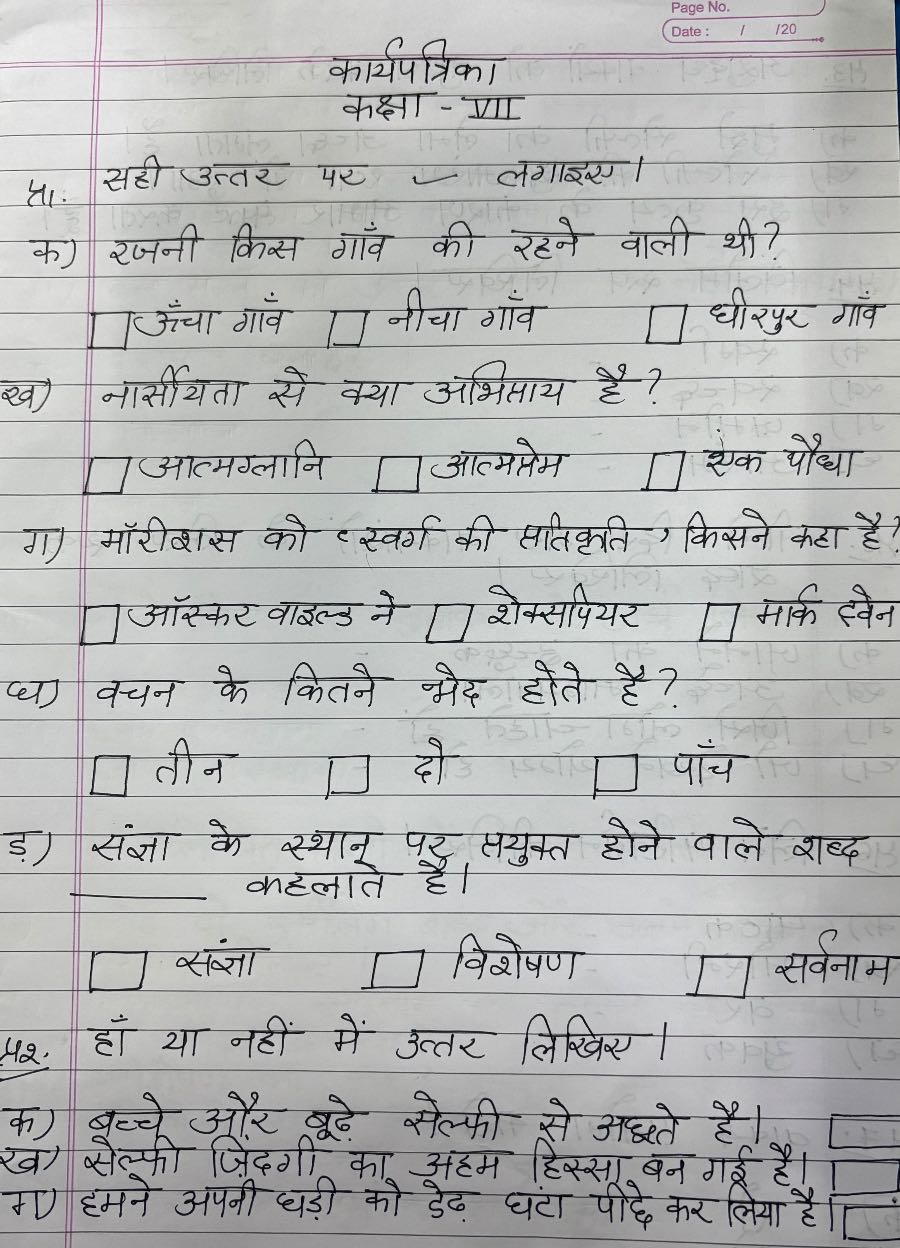 Page No.
Date : / /20
कार्यपत्रिका
कक्षा - VII
प्र1. सही उत्तर पर ✓ लगाइए।
क) रजनी किस गाँव की रहने वाली थी?
☐ ऊँचा गाँव ☐ नीचा गाँव ☐ धीरपुर गाँव
ख) नार्सीयता से क्या अभिप्राय है?
☐ आत्मग्लानि ☐ आत्मप्रेम ☐ एक पौधा
ग) मॉरीशस को ‘स्वर्ग की प्रतिकृति’ किसने कहा है?
☐ ऑस्कर वाइल्ड ने ☐ शेक्सपियर ☐ मार्क ट्वेन
घ) वचन के कितने भेद होते है?
☐ तीन ☐ दो ☐ पाँच
ड़) संज्ञा के स्थान पर प्रयुक्त होने वाले शब्द
______ कहलाते है।
☐ संज्ञा ☐ विशेषण ☐ सर्वनाम
प्र2. हाँ या नहीं में उत्तर लिखिए।
क) बच्चे और बूढ़े सेल्फी से अछूते है। ☐
ख) सेल्फी ज़िंदगी का अहम हिस्सा बन गई है। ☐
ग) हमने अपनी घड़ी को डेढ़ घंटा पीछे कर लिया है। ☐